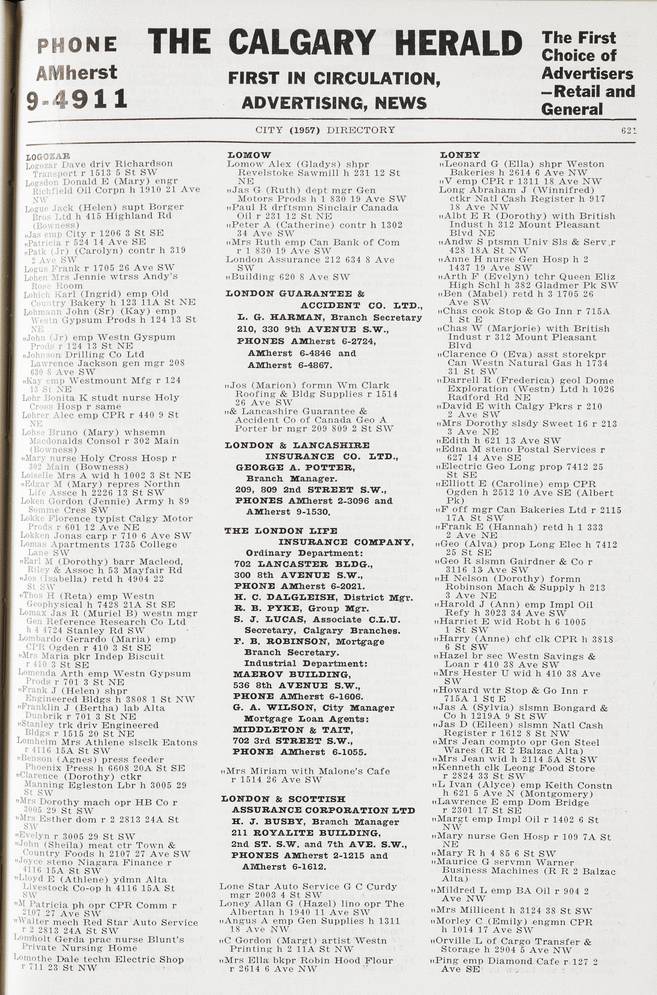 PHONE
AMherst
9-4911
THE CALGARY HERALD
FIRST IN CIRCULATION,
ADVERTISING, NEWS
The First
Choice of
Advertisers
—Retail and
General
CITY (1957) DIRECTORY
621
LOGOZAR
Logozar Dave driv Richardson
Transport r 1513 5 St SW
Logsdon Donald E (Mary) engr
Richfield Oil Corpn h 1910 21 Ave
NW
Logue Jack (Helen) supt Borger
Bros Ltd h 415 Highland Rd
(Bowness)
„Jas emp City r 1206 3 St SE
„Patricia r 524 14 Ave SE
„Patk (Jr) (Carolyn) contr h 319
2 Ave SW
Logus Frank r 1705 26 Ave SW
Lohen Mrs Jennie wtrss Andy's
Rose Room
Lohich Karl (Ingrid) emp Old
Country Bakery h 123 11A St NE
Lohmann John (Sr) (Kay) emp
Westn Gypsum Prods h 124 13 St
NE
„John (Jr) emp Westn Gyspum
Prods r 124 13 St NE
„Johnson Drilling Co Ltd
Lawrence Jackson gen mgr 208
630 8 Ave SW
„Kay emp Westmount Mfg r 124
13 St NE
Lohr Bonita K studt nurse Holy
Cross Hosp r same
Lohrer Alec emp CPR r 440 9 St
NE
Lohse Bruno (Mary) whsemn
Macdonalds Consol r 302 Main
(Bowness)
„Mary nurse Holy Cross Hosp r
302 Main (Bowness)
Loiselle Mrs A wid h 1002 3 St NE
„Edgar M (Mary) repres Northn
Life Assce h 2226 13 St SW
Loken Gordon (Jennie) Army h 89
Somme Cres SW
Lokke Florence typist Calgy Motor
Prods r 601 12 Ave NE
Lokken Jonas carp r 710 6 Ave SW
Lomas Apartments 1735 College
Lane SW
„Earl M (Dorothy) barr Macleod,
Riley & Assoc h 53 Mayfair Rd
„Jos (Isabella) retd h 4904 22
St SW
„Thos H (Reta) emp Westn
Geophysical h 7428 21A St SE
Lomax Jas R (Muriel B) westn mgr
Gen Reference Research Co Ltd
h 4 4724 Stanley Rd SW
Lombardo Gerardo (Maria) emp
CPR Ogden r 410 3 St SE
„Mrs Maria pkr Indep Biscuit
r 410 3 St SE
Lomenda Arth emp Westn Gypsum
Prods r 701 3 St NE
„Frank J (Helen) shpr
Engineered Bldgs h 3808 1 St NW
„Franklin J (Bertha) lab Alta
Dunbrik r 701 3 St NE
„Stanley trk driv Engineered
Bldgs r 1515 20 St NE
Lomheim Mrs Athlene slsclk Eatons
r 4116 15A St SW
„Benson (Agnes) press feeder
Phoenix Press h 6608 20A St SE
„Clarence (Dorothy) ctkr
Manning Egleston Lbr h 3005 29
St SW
„Mrs Dorothy mach opr HB Co r
3005 29 St SW
„Mrs Esther dom r 2 2813 24A St
SW
„Evelyn r 3005 29 St SW
„John (Sheila) meat ctr Town &
Country Foods h 2107 27 Ave SW
„Joyce steno Niagara Finance r
4116 15A St SW
„Lloyd E (Athlene) ydmn Alta
Livestock Co-op h 4116 15A St
SW
„M Patricia ph opr CPR Comm r
2107 27 Ave SW
„Walter mech Red Star Auto Service
r 2 2813 24A St SW
Lomholt Gerda prac nurse Blunt's
Private Nursing Home
Lomothe Dale techn Electric Shop
r 711 23 St NW
LOMOW
Lomow Alex (Gladys) shpr
Revelstoke Sawmill h 231 12 St
NE
„Jas G (Ruth) dept mgr Gen
Motors Prods h 1 830 19 Ave SW
„Paul R drftsmn Sinclair Canada
Oil r 231 12 St NE
„Peter A (Catherine) contr h 1302
34 Ave SW
„Mrs Ruth emp Can Bank of Com
r 1 830 19 Ave SW
London Assurance 212 634 8 Ave
SW
„Building 620 8 Ave SW
LONDON GUARANTEE &
ACCIDENT CO. LTD.,
L. G. HARMAN, Branch Secretary
210, 330 9th AVENUE S.W.,
PHONES AMherst 6-2724,
AMherst 6-4846 and
AMherst 6-4867.
„Jos (Marion) formn Wm Clark
Roofing & Bldg Supplies r 1514
26 Ave SW
„& Lancashire Guarantee &
Accident Co of Canada Geo A
Porter br mgr 209 809 2 St SW
LONDON & LANCASHIRE
INSURANCE CO. LTD.,
GEORGE A. POTTER,
Branch Manager.
209, 809 2nd STREET S.W.,
PHONES AMherst 2-3096 and
AMherst 9-1530.
THE LONDON LIFE
INSURANCE COMPANY,
Ordinary Department:
702 LANCASTER BLDG.,
300 8th AVENUE S.W.,
PHONE AMherst 6-2021.
H. C. DALGLEISH, District Mgr.
R. B. PYKE, Group Mgr.
S. J. LUCAS, Associate C.L.U.
Secretary, Calgary Branches.
F. B. ROBINSON, Mortgage
Branch Secretary.
Industrial Department:
MAEROV BUILDING,
536 8th AVENUE S.W.,
PHONE AMherst 6-1606.
G. A. WILSON, City Manager
Mortgage Loan Agents:
MIDDLETON & TAIT,
702 3rd STREET S.W.,
PHONE AMherst 6-1055.
„Mrs Miriam with Malone's Cafe
r 1514 26 Ave SW
LONDON & SCOTTISH
ASSURANCE CORPORATION LTD
H. J. BUSBY, Branch Manager
211 ROYALITE BUILDING,
2nd ST. S.W. and 7th AVE. S.W.,
PHONES AMherst 2-1215 and
AMherst 6-1612.
Lone Star Auto Service G C Curdy
mgr 2003 4 St SW
Loney Allan G (Hazel) lino opr The
Albertan h 1940 11 Ave SW
„Angus A emp Gen Supplies h 1311
18 Ave NW
„C Gordon (Margt) artist Westn
Printing h 2 11A St NW
„Mrs Ella bkpr Robin Hood Flour
r 2614 6 Ave NW
LONEY
„Leonard G (Ella) shpr Weston
Bakeries h 2614 6 Ave NW
„V emp CPR r 1311 18 Ave NW
Long Abraham J (Winnifred)
ctkr Natl Cash Register h 917
18 Ave NW
„Albt E R (Dorothy) with British
Indust h 312 Mount Pleasant
Blvd NE
„Andw S ptsmn Univ Sls & Serv r
428 18A St NW
„Anne H nurse Gen Hosp h 2
1437 19 Ave SW
„Arth F (Evelyn) tchr Queen Eliz
High Schl h 382 Gladmer Pk SW
„Ben (Mabel) retd h 3 1705 26
Ave SW
„Chas cook Stop & Go Inn r 715A
1 St E
„Chas W (Marjorie) with British
Indust r 312 Mount Pleasant
Blvd
„Clarence O (Eva) asst storekpr
Can Westn Natural Gas h 1734
31 St SW
„Darrell R (Frederica) geol Dome
Exploration (Westn) Ltd h 1026
Radford Rd NE
„David E with Calgy Pkrs r 210
2 Ave SW
„Mrs Dorothy slsdy Sweet 16 r 213
3 Ave NE
„Edith h 621 13 Ave SW
„Edna M steno Postal Services r
627 14 Ave SE
„Electric Geo Long prop 7412 25
St SE
„Elliott E (Caroline) emp CPR
Ogden h 2512 10 Ave SE (Albert
Pk)
„F off mgr Can Bakeries Ltd r 2115
17A St SW
„Frank E (Hannah) retd h 1 333
2 Ave NE
„Geo (Alva) prop Long Elec h 7412
25 St SE
„Geo R slsmn Gairdner & Co r
3116 13 Ave SW
„H Nelson (Dorothy) formn
Robinson Mach & Supply h 213
3 Ave NE
„Harold J (Ann) emp Impl Oil
Refy h 3023 34 Ave SW
„Harriet E wid Robt h 6 1005
1 St SW
„Harry (Anne) chf clk CPR h 3818
6 St SW
„Hazel br sec Westn Savings &
Loan r 410 38 Ave SW
„Mrs Hester U wid h 410 38 Ave
SW
„Howard wtr Stop & Go Inn r
715A 1 St E
„Jas A (Sylvia) slsmn Bongard &
Co h 1219A 9 St SW
„Jas D (Eileen) slsmn Natl Cash
Register r 1612 8 St NW
„Mrs Jean compto opr Gen Steel
Wares (R R 2 Balzac Alta)
„Mrs Jean wid h 2114 5A St SW
„Kenneth clk Leong Food Store
r 2824 33 St SW
„L Ivan (Alyce) emp Keith Constn
h 621 5 Ave N (Montgomery)
„Lawrence E emp Dom Bridge
r 2301 17 St SE
„Margt emp Impl Oil r 1402 6 St
NW
„Mary nurse Gen Hosp r 109 7A St
NE
„Mary R h 4 85 6 St SW
„Maurice G servmn Warner
Business Machines (R R 2 Balzac
Alta)
„Mildred L emp BA Oil r 904 2
Ave NW
„Mrs Millicent h 3124 38 St SW
„Morley C (Emily) engmn CPR
h 1014 17 Ave SW
„Orville L of Cargo Transfer &
Storage h 2904 5 Ave NW
„Ping emp Diamond Cafe r 127 2
Ave SE